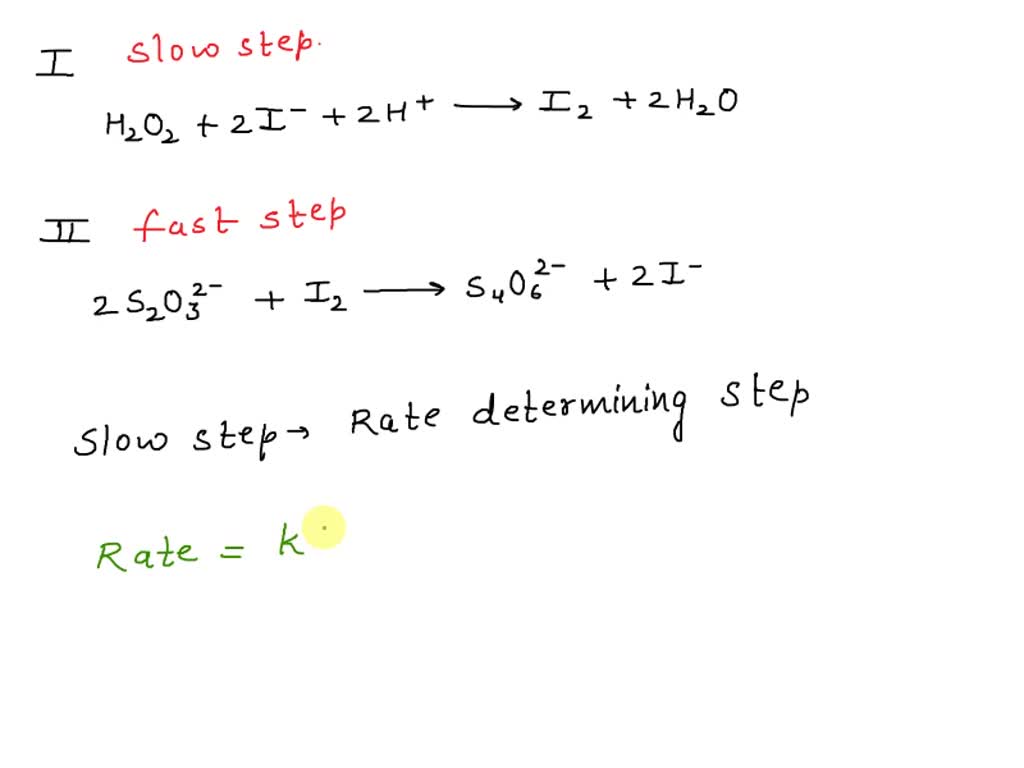 I slow step.
H₂O₂ + 2I⁻ + 2H⁺ ⟶ I₂ + 2H₂O
II fast step
2S₂O₃²⁻ + I₂ ⟶ S₄O₆²⁻ + 2I⁻
Slow step → Rate determining step
Rate = k